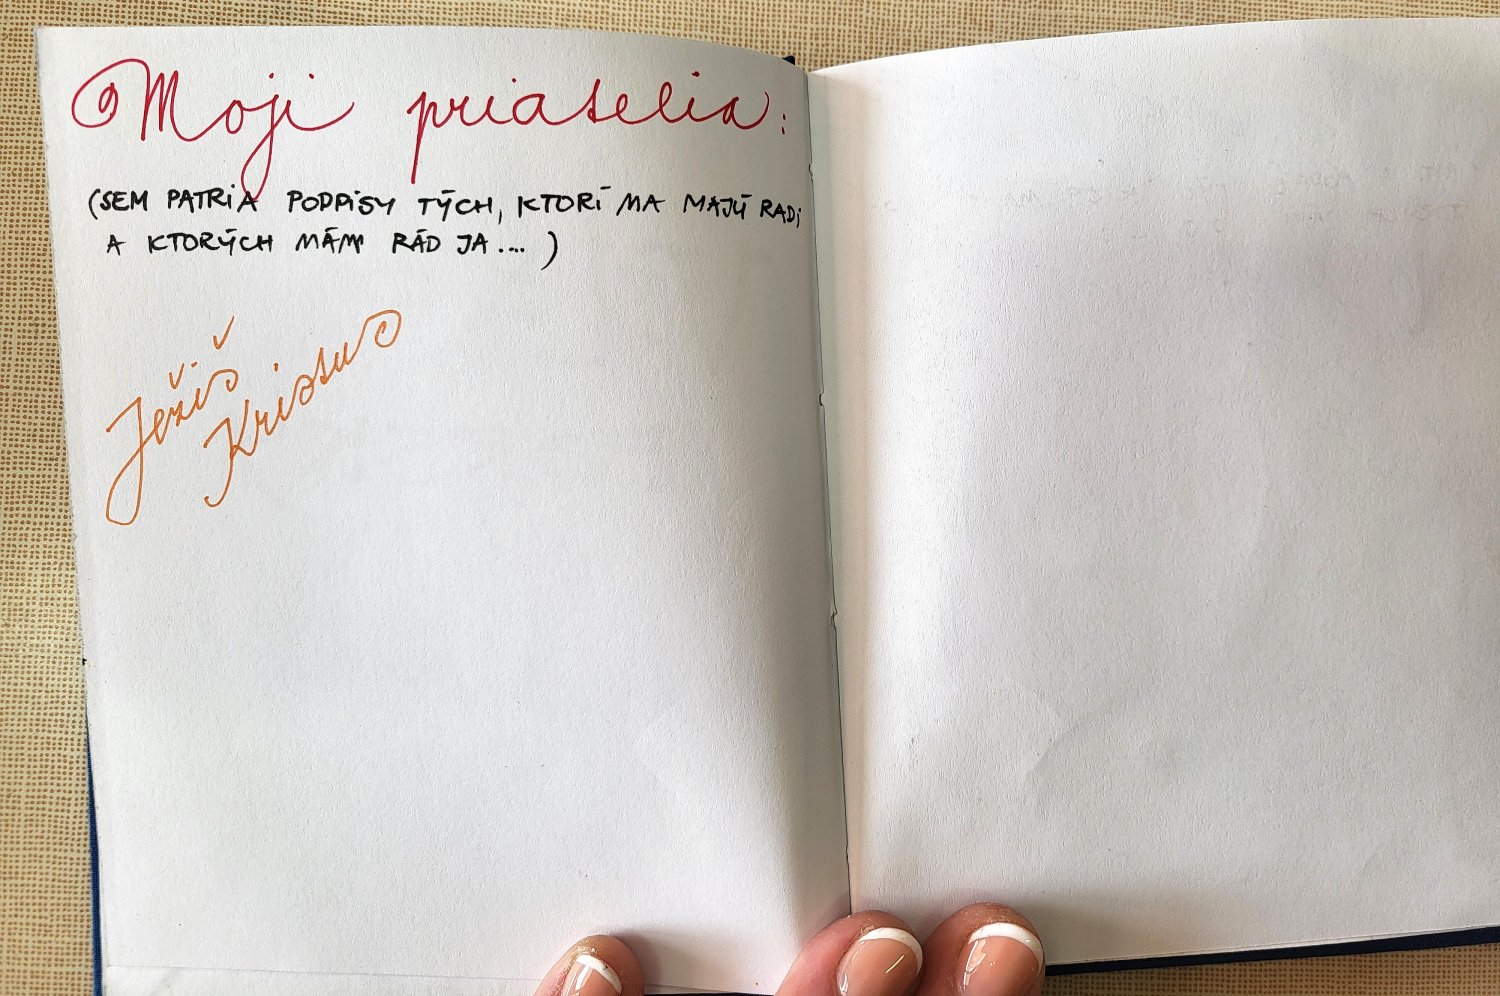 Moji priatelia:
(SEM PATRIA PODPISY TÝCH, KTORÍ MA MAJÚ RADI
A KTORÝCH MÁM RÁD JA....)
Ježiš
Kristus